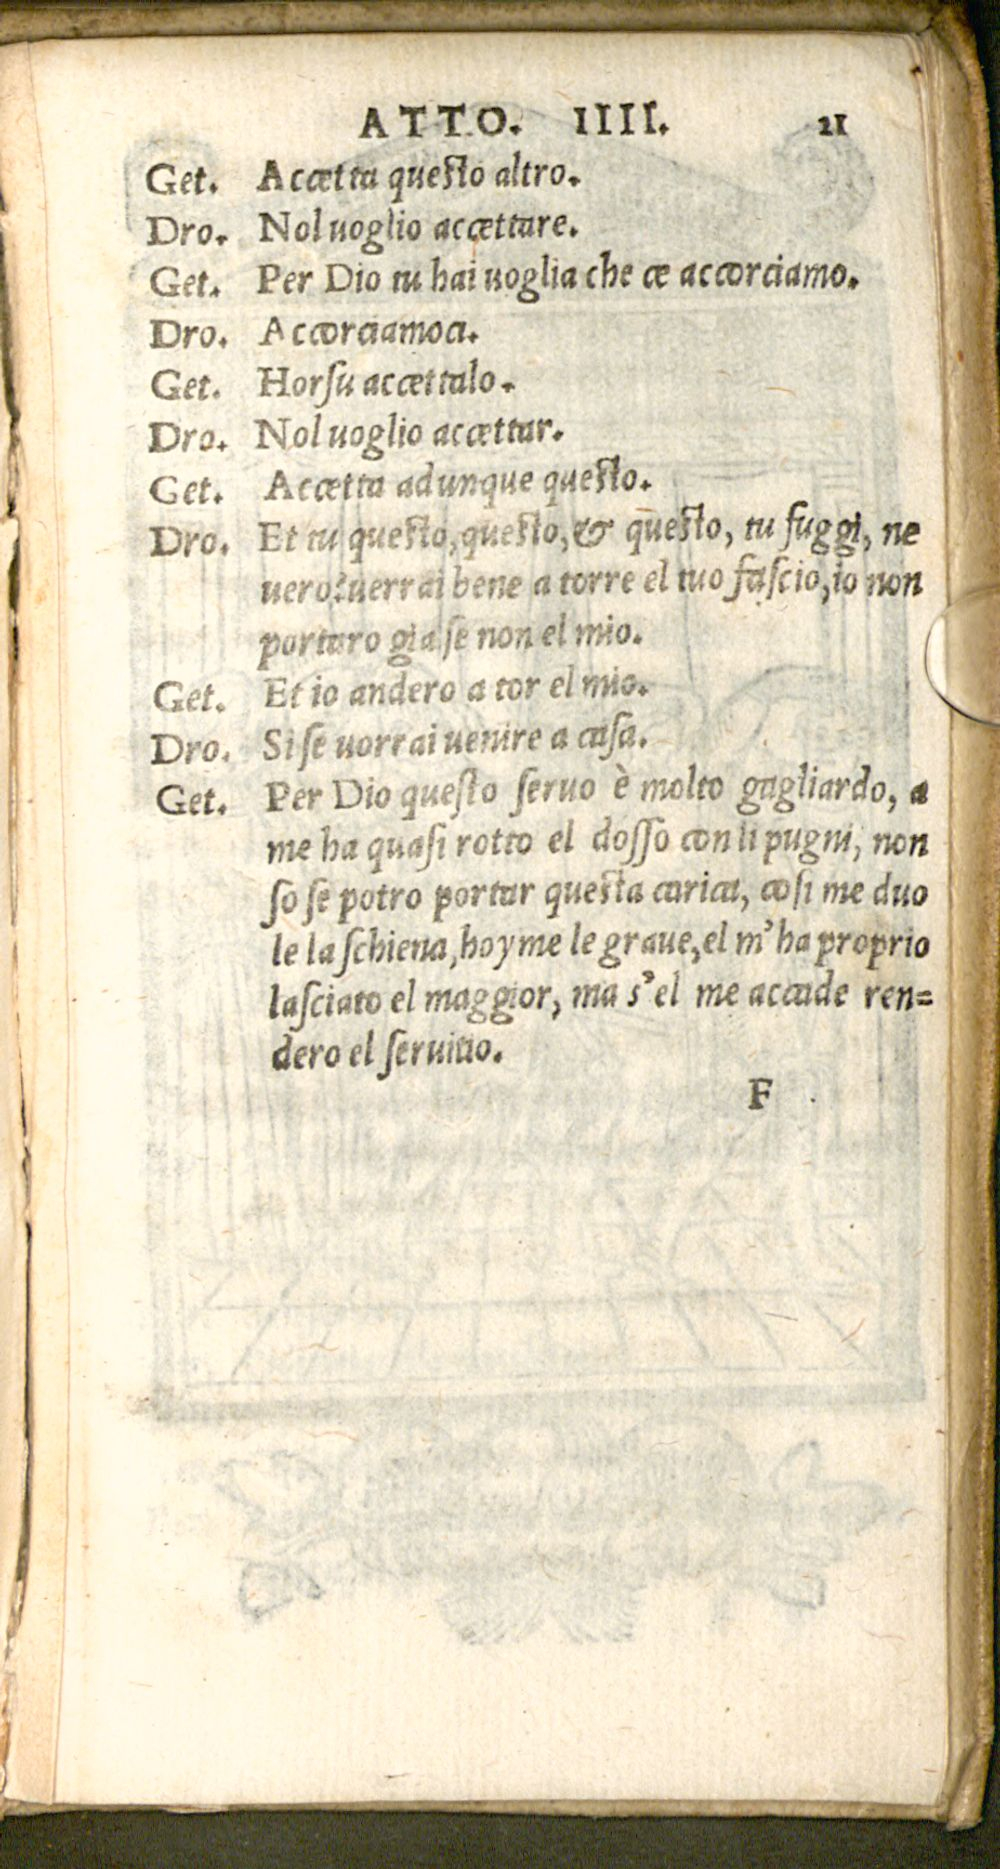 ATTO. IIII. 21
Get. Accetta questo altro.
Dro. Nol uoglio accettare.
Get. Per Dio tu hai uoglia che ce accorciamo.
Dro. Accorciamoci.
Get. Horsu accettalo.
Dro. Nol uoglio accettar.
Get. Accetta adunque questo.
Dro. Et tu questo, questo, & questo, tu fuggi, ne
uero? uerrai bene a torre el tuo fascio, io non
portaro gia se non el mio.
Get. Et io andero a tor el mio.
Dro. Si se uorrai uenire a casa.
Get. Per Dio questo seruo è molto gagliardo, a
me ha quasi rotto el dosso con li pugni, non
so se potro portar questa carica, cosi me duo
le la schiena, hoyme le graue, el m'ha proprio
lasciato el maggior, ma s'el me accade ren=
dero el seruitio.
F